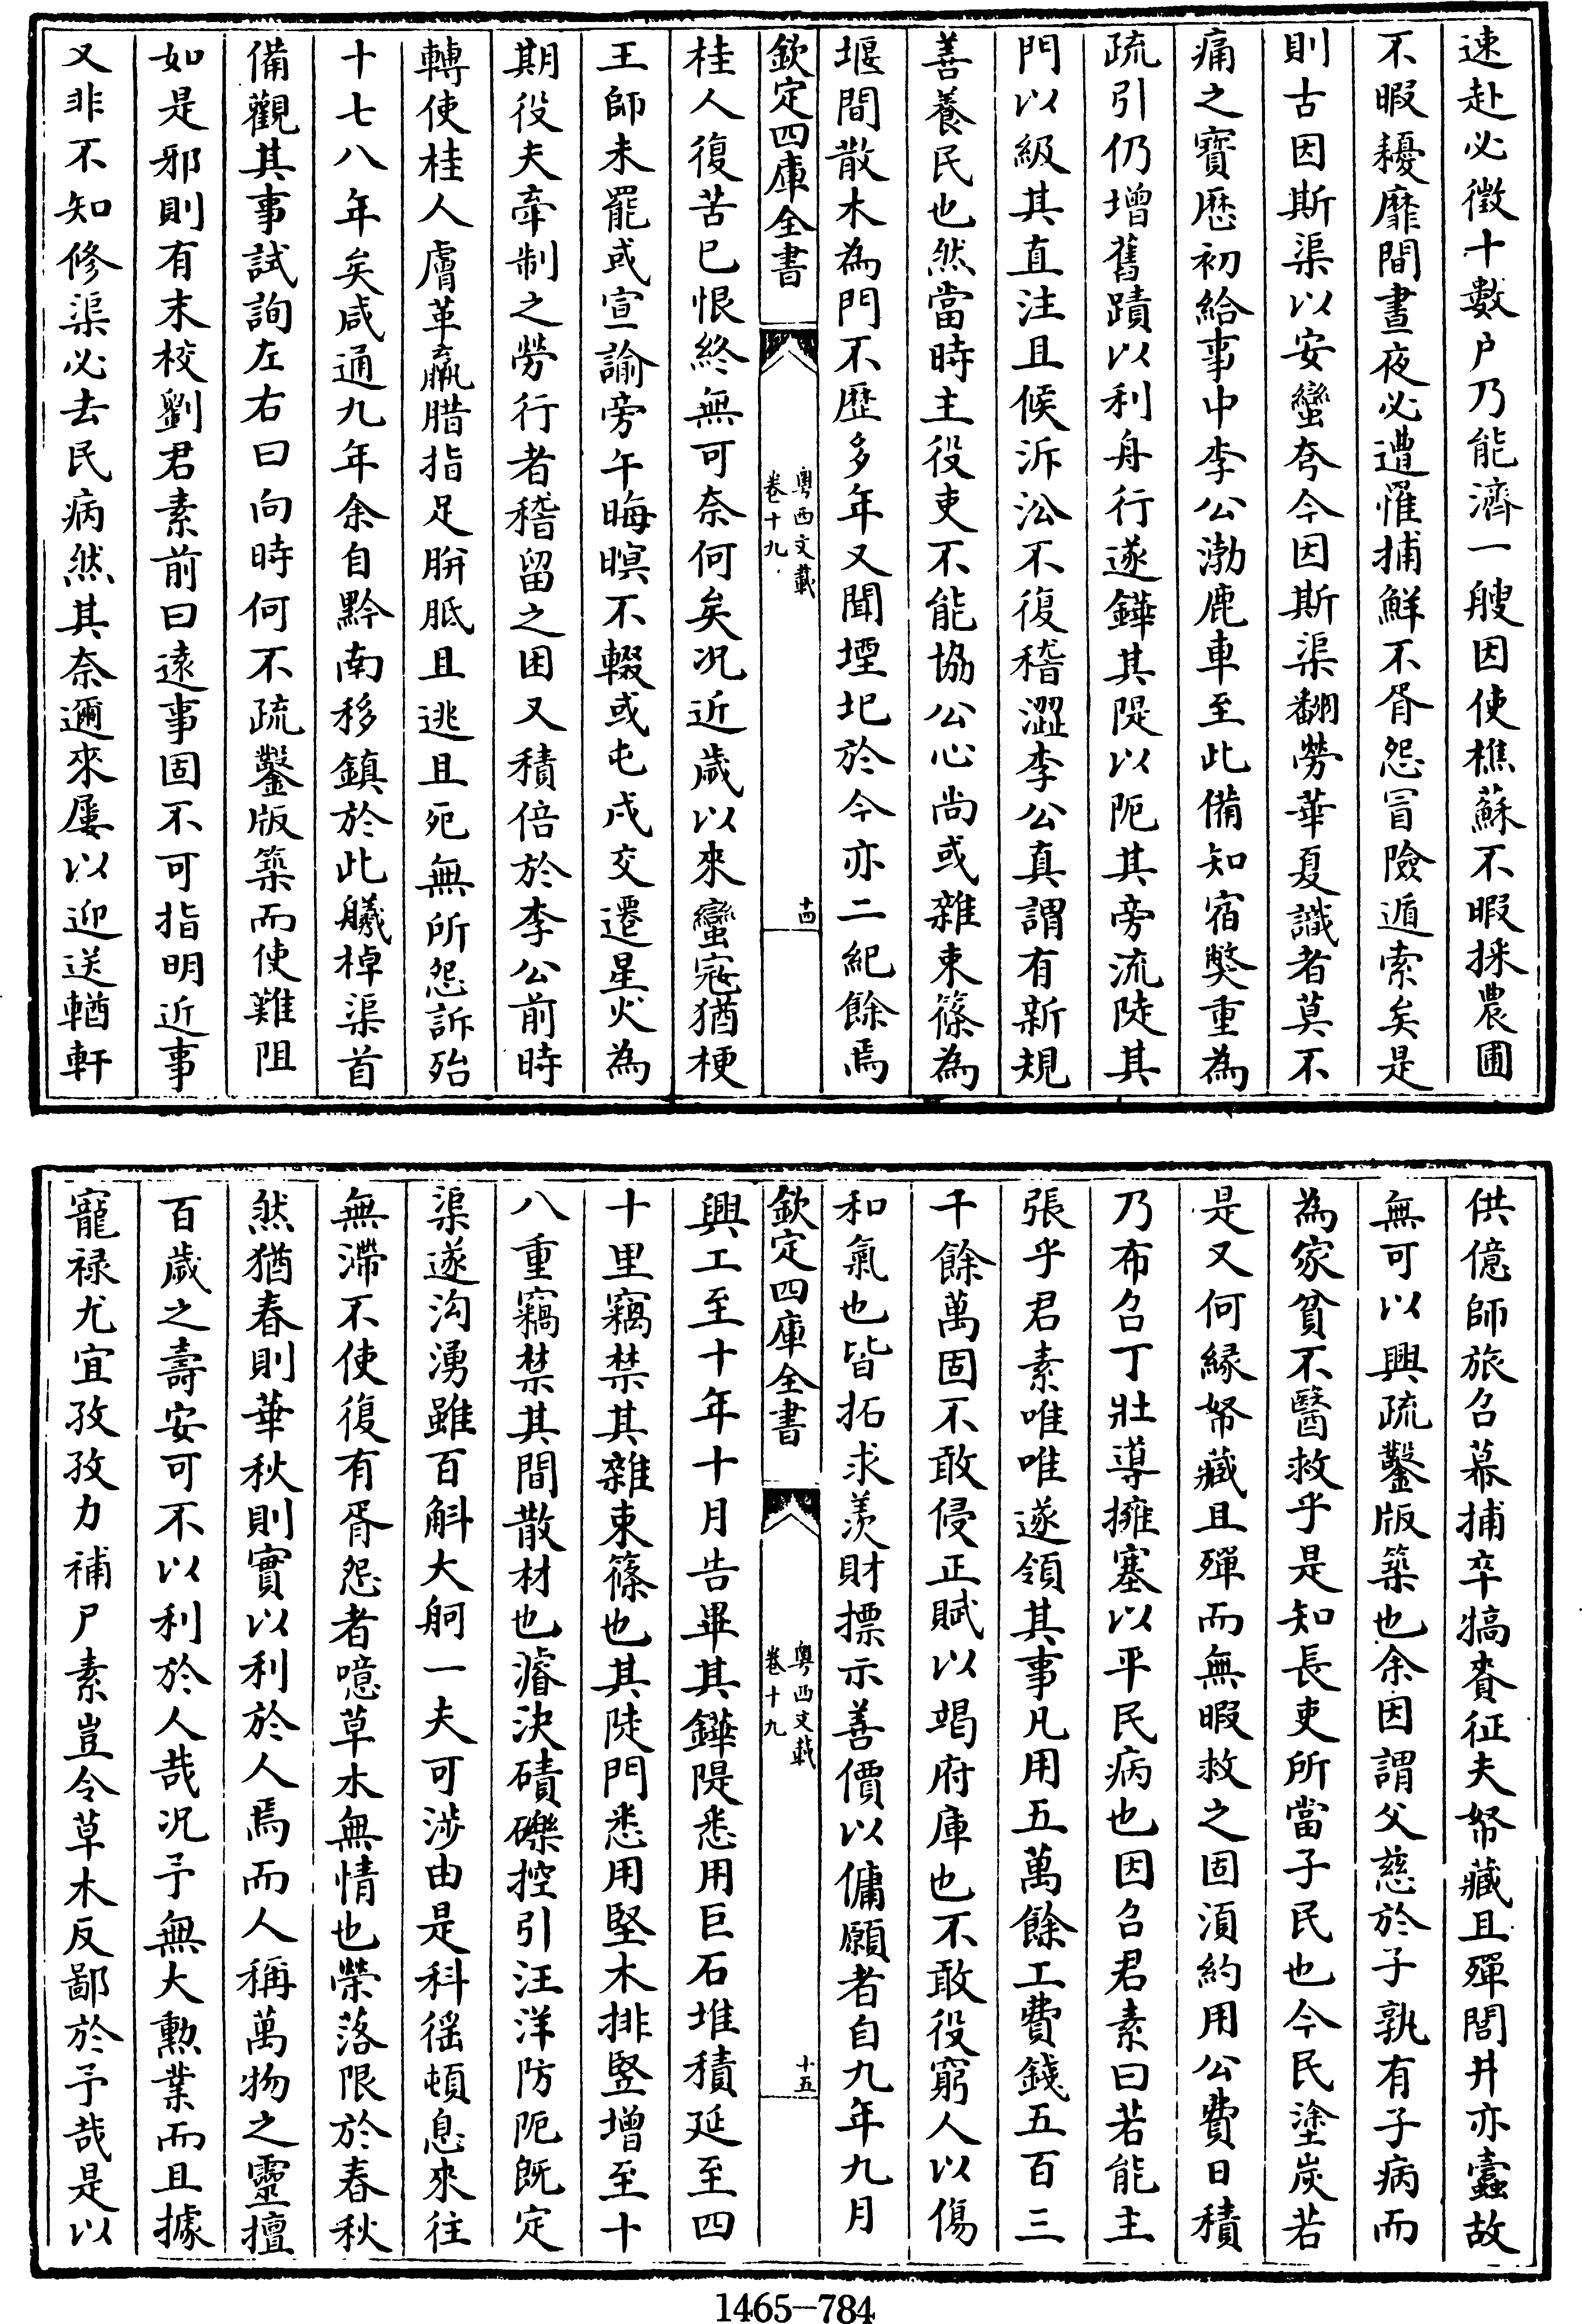 速赴必徵十數户乃能濟一艘因使樵蘇不暇採農圃
不暇耰靡間晝夜必遭罹捕鮮不胥怨冒險遁索矣是
則古因斯渠以安蠻夸今因斯渠翻勞華夏識者莫不
痛之寳厯初給事中李公渤鹿車至此備知宿弊重為
疏引仍增舊蹟以利舟行遂鏵其隄以阨其旁流陡其
門以級其直注且候泝㳂不復稽澀李公真謂有新規
善養民也然當時主役吏不能協公心尚或雜束篠為
堰間散木為門不歴多年又聞堙圮於今亦二紀餘焉
欽定四庫全書
粵西文載
卷十九
十四
桂人復苦已恨終無可奈何矣况近歲以來蠻寇猶梗
王師未罷或宣諭旁午晦暝不輟或屯戍交遷星火為
期役夫牽制之勞行者稽留之困又積倍於李公前時
轉使桂人膚革羸腊指足胼胝且逃且死無所怨訴殆
十七八年矣咸通九年余自黔南移鎮於此艤棹渠首
備觀其事試詢左右曰向時何不疏鑿版築而使難阻
如是邪則有末校劉君素前曰遠事固不可指明近事
又非不知修渠必去民病然其奈邇來屢以迎送輶軒
供億師旅召募捕卒犒賚征夫帑藏且殫閭井亦蠧故
無可以興疏鑿版築也余因謂父慈於子孰有子病而
為家貧不醫救乎是知長吏所當子民也今民塗炭若
是又何縁帑藏且殫而無暇救之固湏約用公費日積
乃布召丁壯導擁塞以平民病也因召君素曰若能主
張乎君素唯唯遂領其事凡用五萬餘工費錢五百三
千餘萬固不敢侵正賦以竭府庫也不敢役窮人以傷
和氣也皆拓求羨財摽示善價以傭願者自九年九月
欽定四庫全書
粵西文載
卷十九
十五
興工至十年十月告畢其鏵隄悉用巨石堆積延至四
十里竊禁其雜束篠也其陡門悉用堅木排竪增至十
八重竊禁其間散材也濬決磧礫控引汪洋防阨既定
渠遂沟湧雖百斛大舸一夫可涉由是科徭頓息來往
無滯不使復有胥怨者噫草木無情也榮落限於春秋
然猶春則華秋則實以利於人焉而人稱萬物之靈擅
百歲之壽安可不以利於人哉况予無大勲業而且據
寵禄尤宜孜孜力補尸素豈令草木反鄙於予哉是以
1465—784